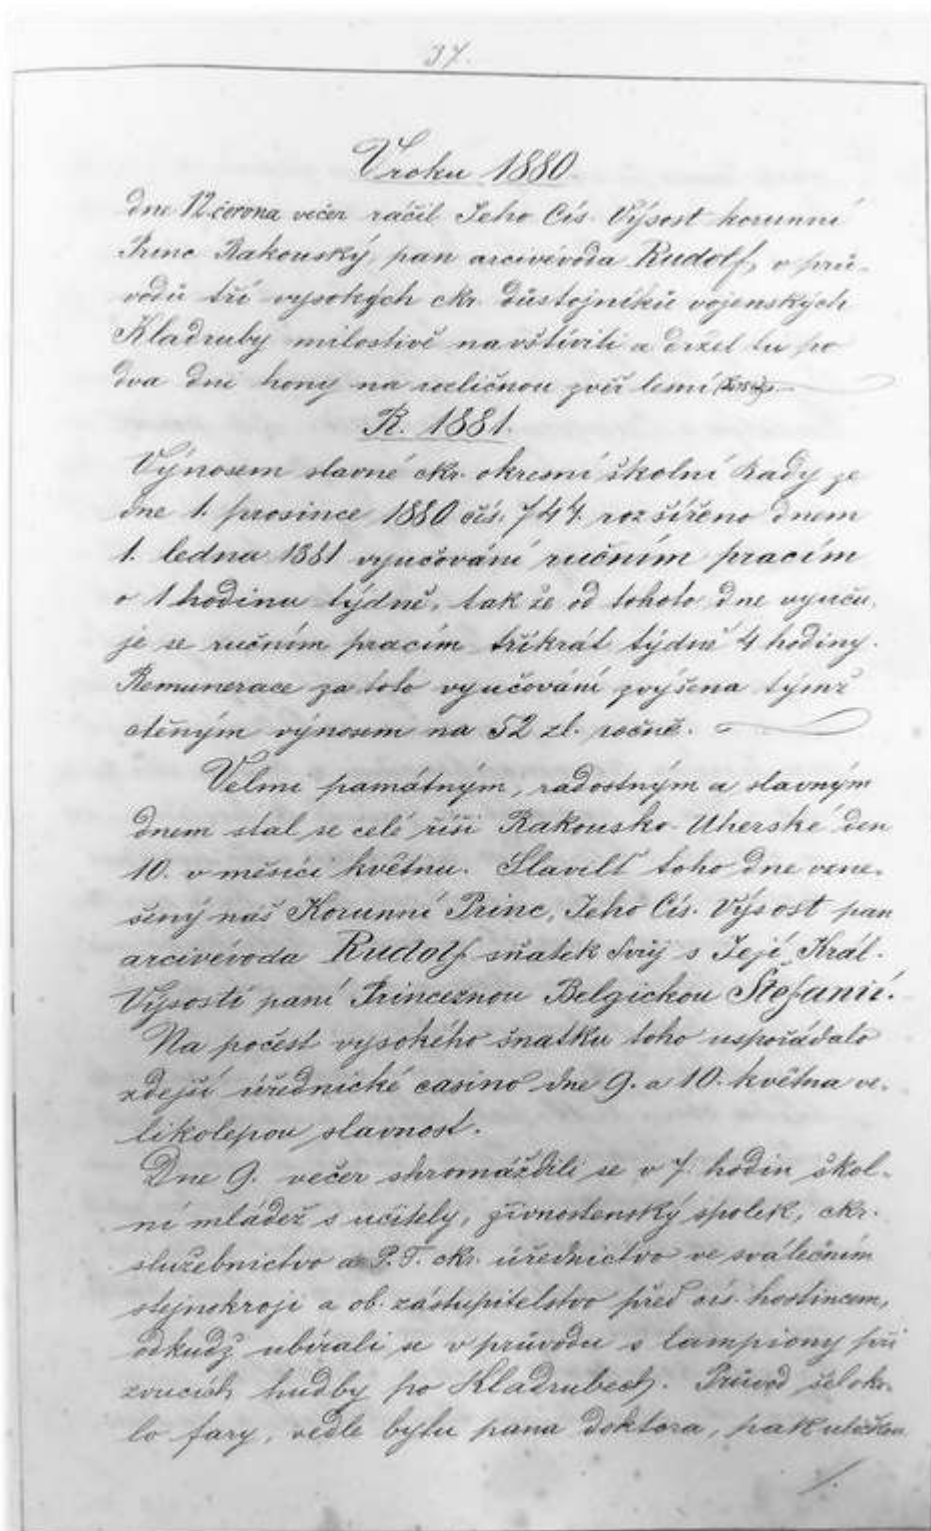 37.
V roku 1880.
dne 12. června večer ráčil Jeho Cís. Výsost korunní
Princ Rakouský, pan arcivévoda Rudolf, v prů-
vodu tří vysokých ckr. důstojníků vojenských
Kladruby milostivě navštíviti a držel tu po
dva dni hony na rozličnou zvěř lesní
R. 1881.
Výnosem slavné ckr. okresní školní Rady ze
dne 1. prosince 1880 čís. 744. rozšířeno dnem
1. ledna 1881 vyučování ručním pracím
o 1 hodinu týdně, tak že od tohoto dne vyuču-
je se ručním pracím tříkrát týdně 4 hodiny.
Remunerace za toto vyučování zvýšena týmž
ctěným výnosem na 52 zl. ročně.
Velmi památným, radostným a slavným
dnem stal se celé říši Rakousko-Uherské den
10. v měsíci květnu. Slavilť toho dne vzne-
šený náš Korunní Princ, Jeho Cís. Výsost pan
arcivévoda Rudolf sňatek svůj s Její Král.
Výsostí paní Princeznou Belgickou Štefanií.
Na počest vysokého sňatku toho uspořádalo
zdejší úřednické casino dne 9. a 10. května ve-
likolepou slavnost.
Dne 9. večer shromáždili se v 7. hodin škol-
ní mládež s učitely, živnostenský spolek, ckr.
služebnictvo a P. T. ckr. úřednictvo ve svátečním
stejnokroji a ob. zastupitelstvo před cís. hostincem,
odkudž ubírali se v průvodu s lampiony při
zvucích hudby po Kladrubech. Průvod šel oko-
lo fary, vedle bytu pana doktora, pak uličkou
/.